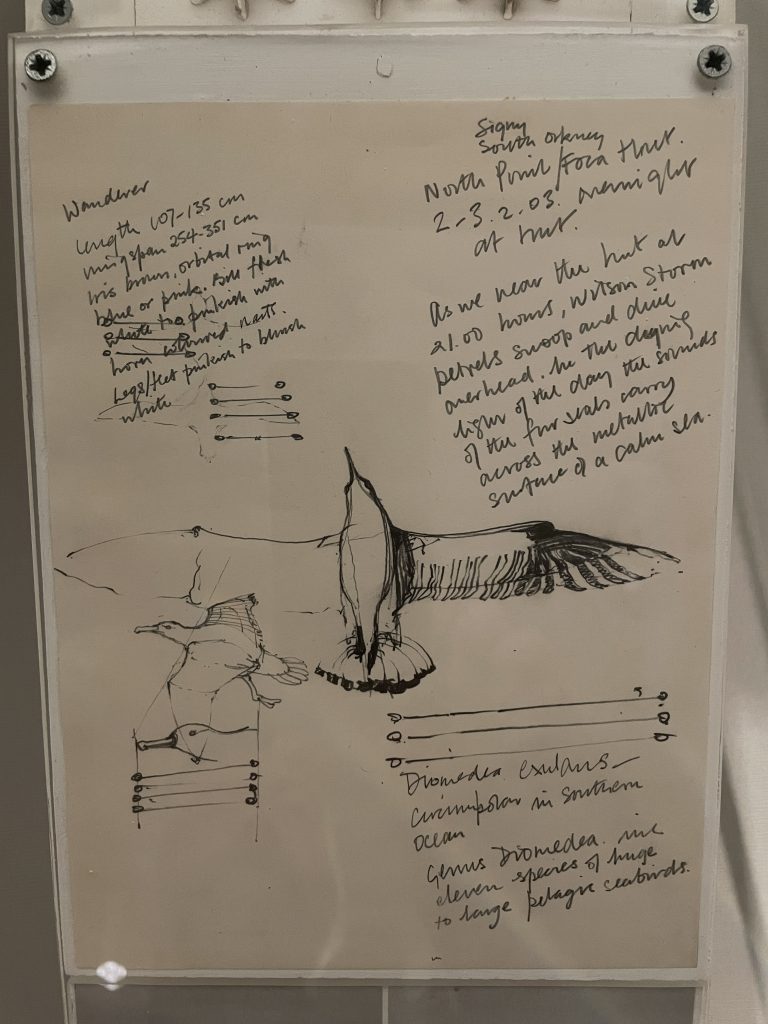 Wanderer
Length 107-135 cm
wingspan 254-351 cm
Iris brown, orbital ring
blue or pink. Bill flesh
white to pinkish with
horn coloured nails.
Legs/feet pinkish to bluish
white
Signy
South Orkney
North Point/Foca Hut.
2-3.2.03. overnight
at hut.
As we near the hut at
21.00 hours, Wilson Storm
petrels swoop and dive
overhead. In the
light of the day the sounds
of the fur seals carry
across the metallic
surface of a calm sea.
Diomedea exulans –
circumpolar in Southern
Ocean
Genus Diomedea.
eleven species of huge
to large pelagic seabirds.